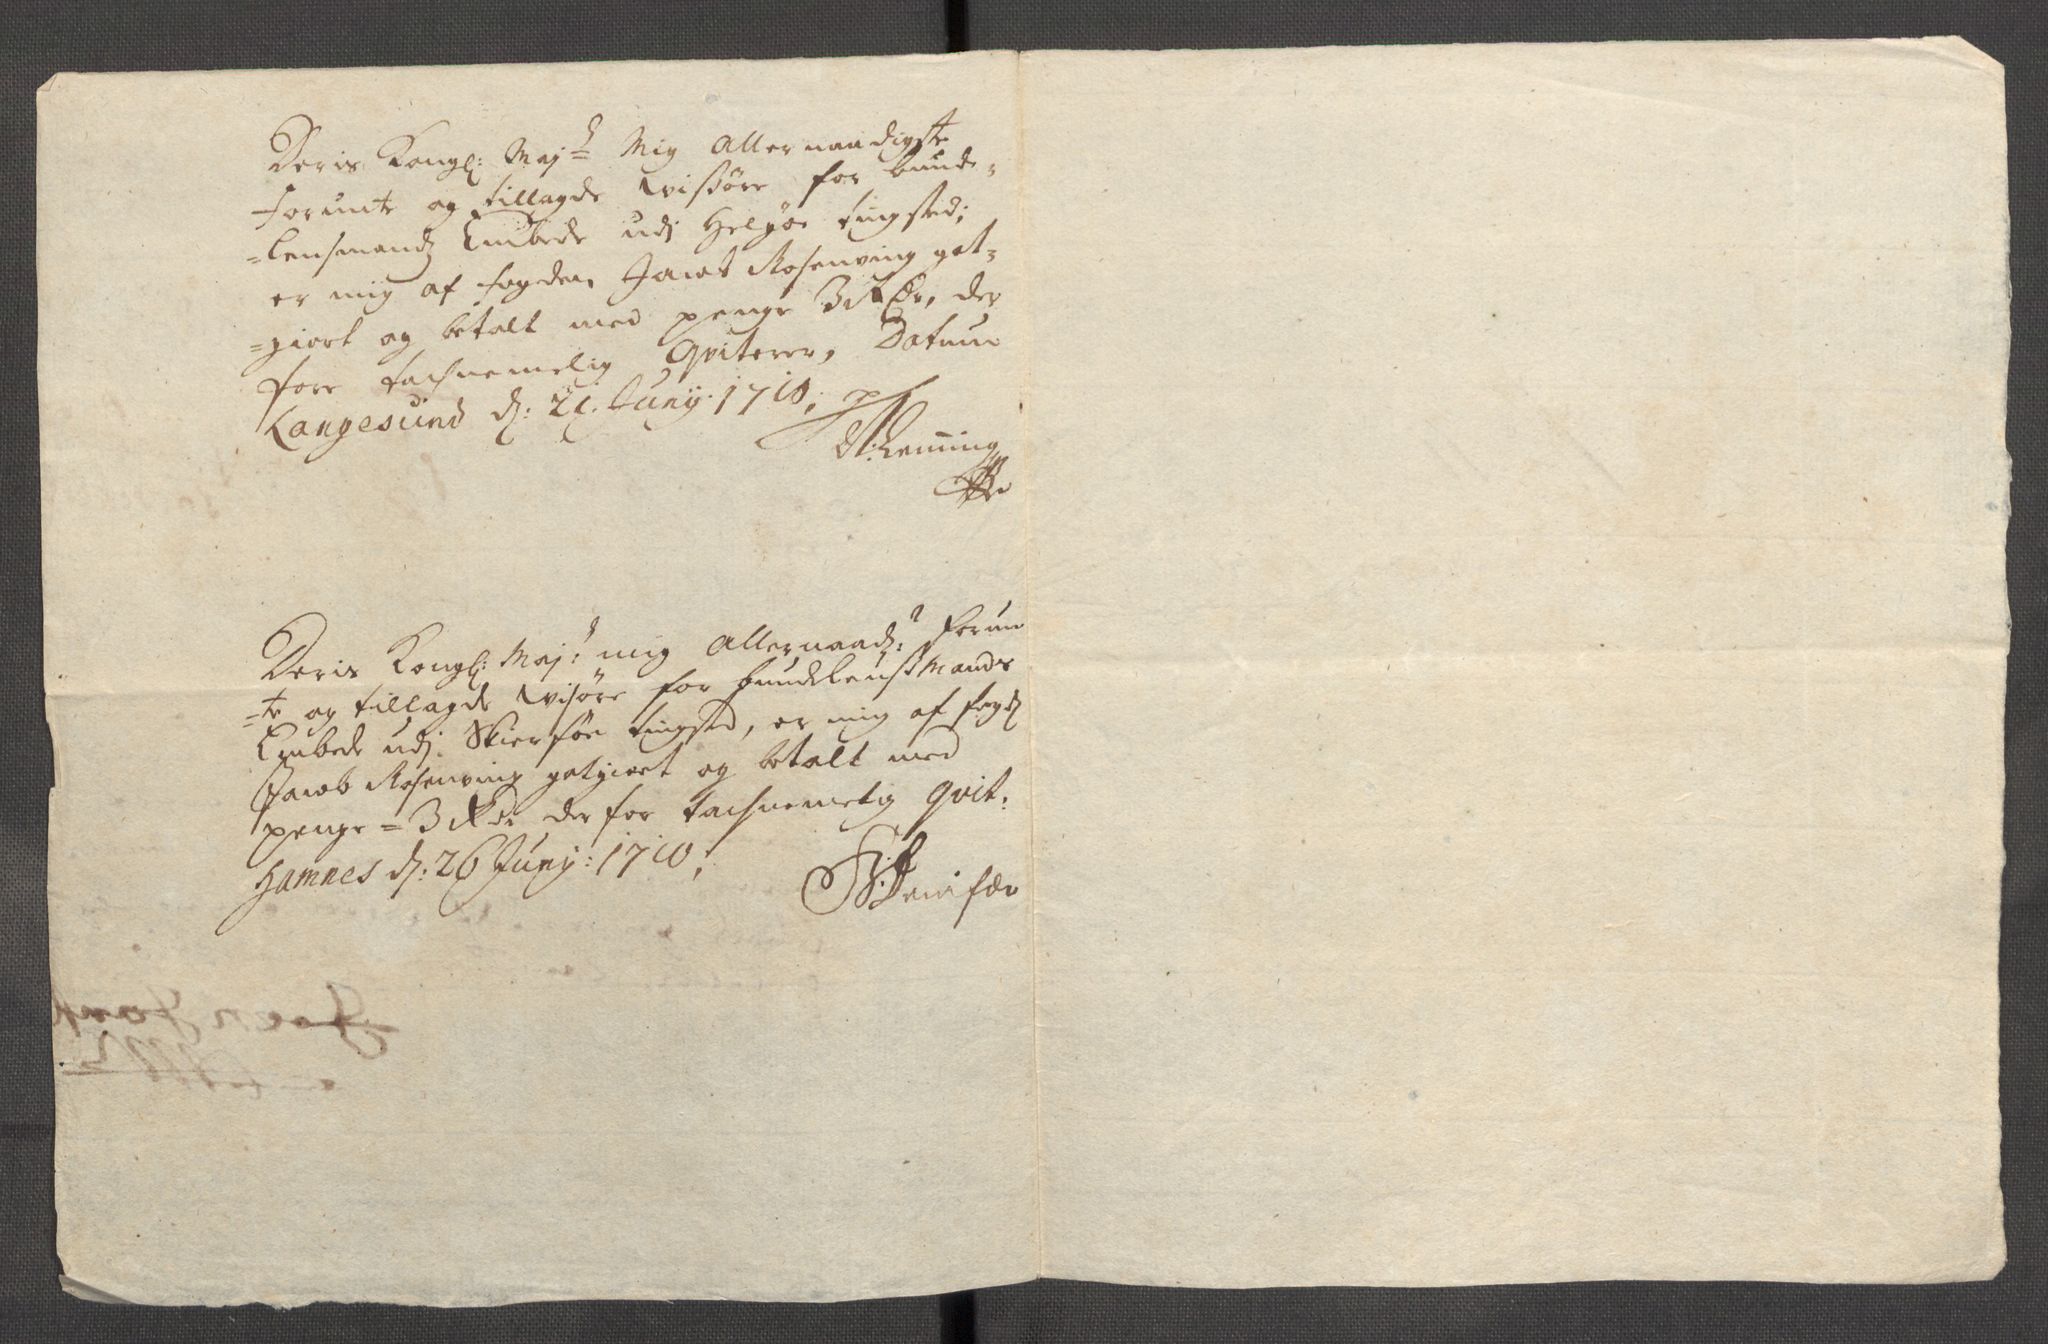 Deris Kongl: Maj:ts Mig Allernaadigste
forunte og tillagde Wisøre for bunde-
-lensmandz Embede udj Helgøe tingsted;
er mig af fogden Jacob Rosenving got-
-giort og betalt med penge 3 Rdr, der
fore tachnemelig Qviterer, Datum
Langesund d: 21. Junij: 1710;
Hemming
Deris Kongl: Maj:ts mig Allernaad: forun
-te og tillagde Wisøre for bundelensmands
Embede udj Skierføe tingsted, er mig af fogd
Jacob Rosenving gotgiort og betalt med
penge = 3 Rdr der for tachnemelig Qvit:
Hamnes d: 26 Junij: 1710;